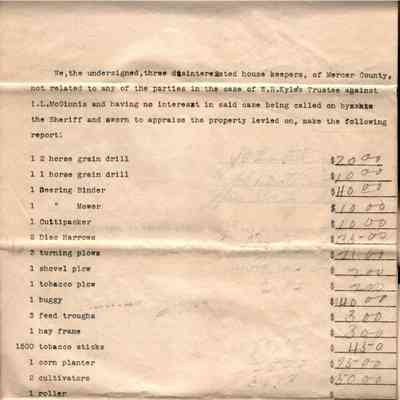 We,the undersigned,three disinterested house keepers, of Mercer County,
not related to any of the parties in the case of W.R.Kyle's Trustee against
I.L.McGinnis and having no interest in said case being called on by
the Sheriff and sworn to appraise the property levied on, make the following
report:
1 2 horse grain drill $20 00
1 1 horse grain drill $10 00
1 Deering Binder $40 00
1 " Mower $10 00
1 Cultipacker $10 00
2 Disc Harrows $25-00
3 turning plows $
1 shovel plow $ 2 00
1 tobacco plow $ 2 00
1 buggy $40 00
3 feed troughs $ 3 00
1 hay frame $ 3 00
1500 tobacco sticks $ 4 50
1 corn planter $25-00
2 cultivators $50 00
1 roller $